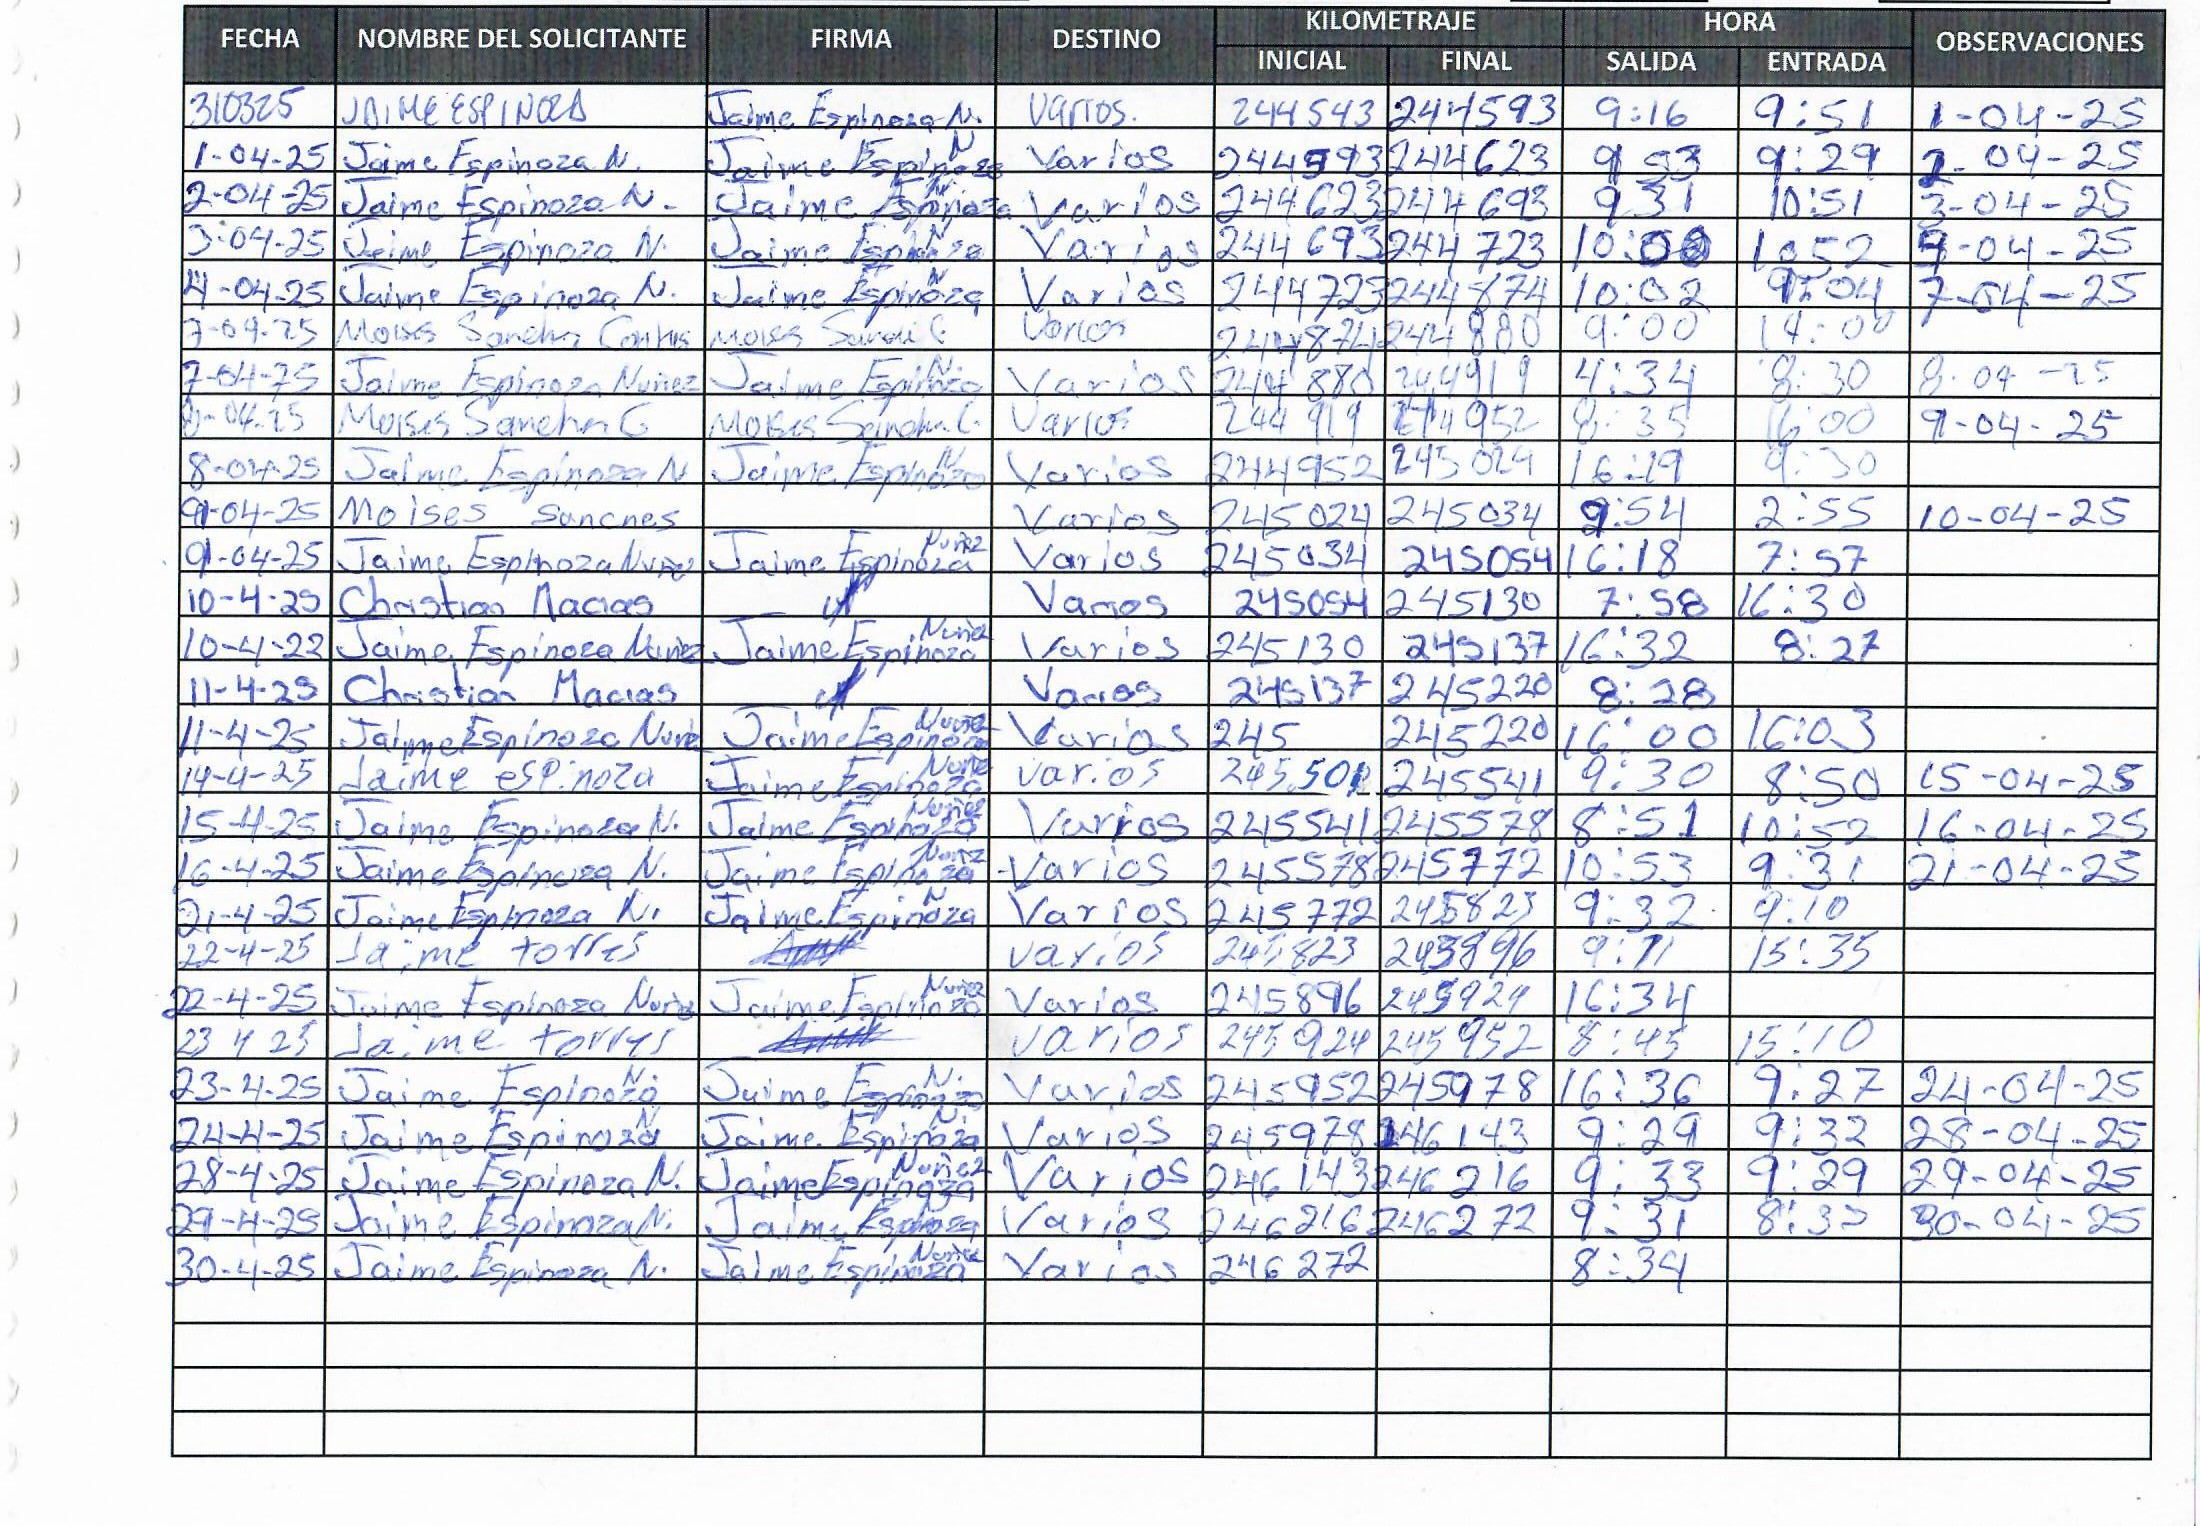 FECHA NOMBRE DEL SOLICITANTE FIRMA DESTINO KILOMETRAJE HORA OBSERVACIONES
INICIAL FINAL SALIDA ENTRADA
310325 JAIME ESPINOZA Jaime Espinoza N. varios. 244543 244593 9:16 9:51 1-04-25
1-04-25 Jaime Espinoza N. Jaime Espinoza N Varios 244593 244623 9 53 9:29 2-04-25
2-04-25 Jaime Espinoza N. Jaime Espinoza N. Varios 244623 244693 9 31 10:51 3-04-25
3-04-25 Jaime Espinoza N. Jaime Espinoza N Varios 244693 244723 10:00 10:52 4-04-25
4-04-25 Jaime Espinoza N. Jaime Espinoza N Varios 244723 244874 10:02 9:04 7-04-25
7-04-25 Moises Sanchez Moises Varios 244874 244880 9:00 14:00
7-04-25 Jaime Espinoza Nuñez Jaime Espinoza N. Varios 244880 244919 4:34 8:30 8-04-25
8-04-25 Moises Sanchez C Moises Sanchez C. Varios 244919 244952 8:35 16:00 9-04-25
8-04-25 Jaime Espinoza N Jaime Espinoza N. Varios 244952 245024 16:19 9:30
9-04-25 Moises Sanches Varios 245024 245034 9:54 2:55 10-04-25
9-04-25 Jaime Espinoza Nuñez Jaime Espinoza Nuñez Varios 245034 245054 16:18 7:57
10-4-25 Christian Macias Varios 245054 245130 7:58 16:30
10-4-22 Jaime Espinoza Nuñez Jaime Espinoza Nuñez Varios 245130 245137 16:32 8:27
11-4-25 Christian Macias Varios 245137 245220 8:28
11-4-25 Jaime Espinoza Nuñez Jaime Espinoza Nuñez Varios 245 245220 16:00 16:03
14-4-25 Jaime espinoza Jaime Espinoza Nuñez varios 245501 245541 9:30 8:50 15-04-25
15-4-25 Jaime Espinoza N. Jaime Espinoza Nuñez Varios 245541 245578 8:51 10:52 16-04-25
16-4-25 Jaime Espinoza N. Jaime Espinoza Nuñez Varios 245578 245772 10:53 9:31 21-04-25
21-4-25 Jaime Espinoza N. Jaime Espinoza N Varios 245772 245823 9:32 9:10
22-4-25 Jaime torres varios 245823 245896 9:11 15:35
22-4-25 Jaime Espinoza Nuñez Jaime Espinoza Nuñez Varios 245896 245924 16:34
23 4 25 Jaime torres varios 245924 245952 8:45 15:10
23-4-25 Jaime Espinoza N. Jaime Espinoza N. Varios 245952 245978 16:36 9:27 24-04-25
24-4-25 Jaime Espinoza N Jaime Espinoza N. Varios 245978 246143 9:29 9:32 28-04-25
28-4-25 Jaime Espinoza N. Jaime Espinoza Nuñez Varios 246143 246216 9:33 9:29 29-04-25
29-4-25 Jaime Espinoza N. Jaime Espinoza Varios 246216 246272 9:31 30-04-25
30-4-25 Jaime Espinoza N. Jaime Espinoza Nuñez Varios 246272 8:34